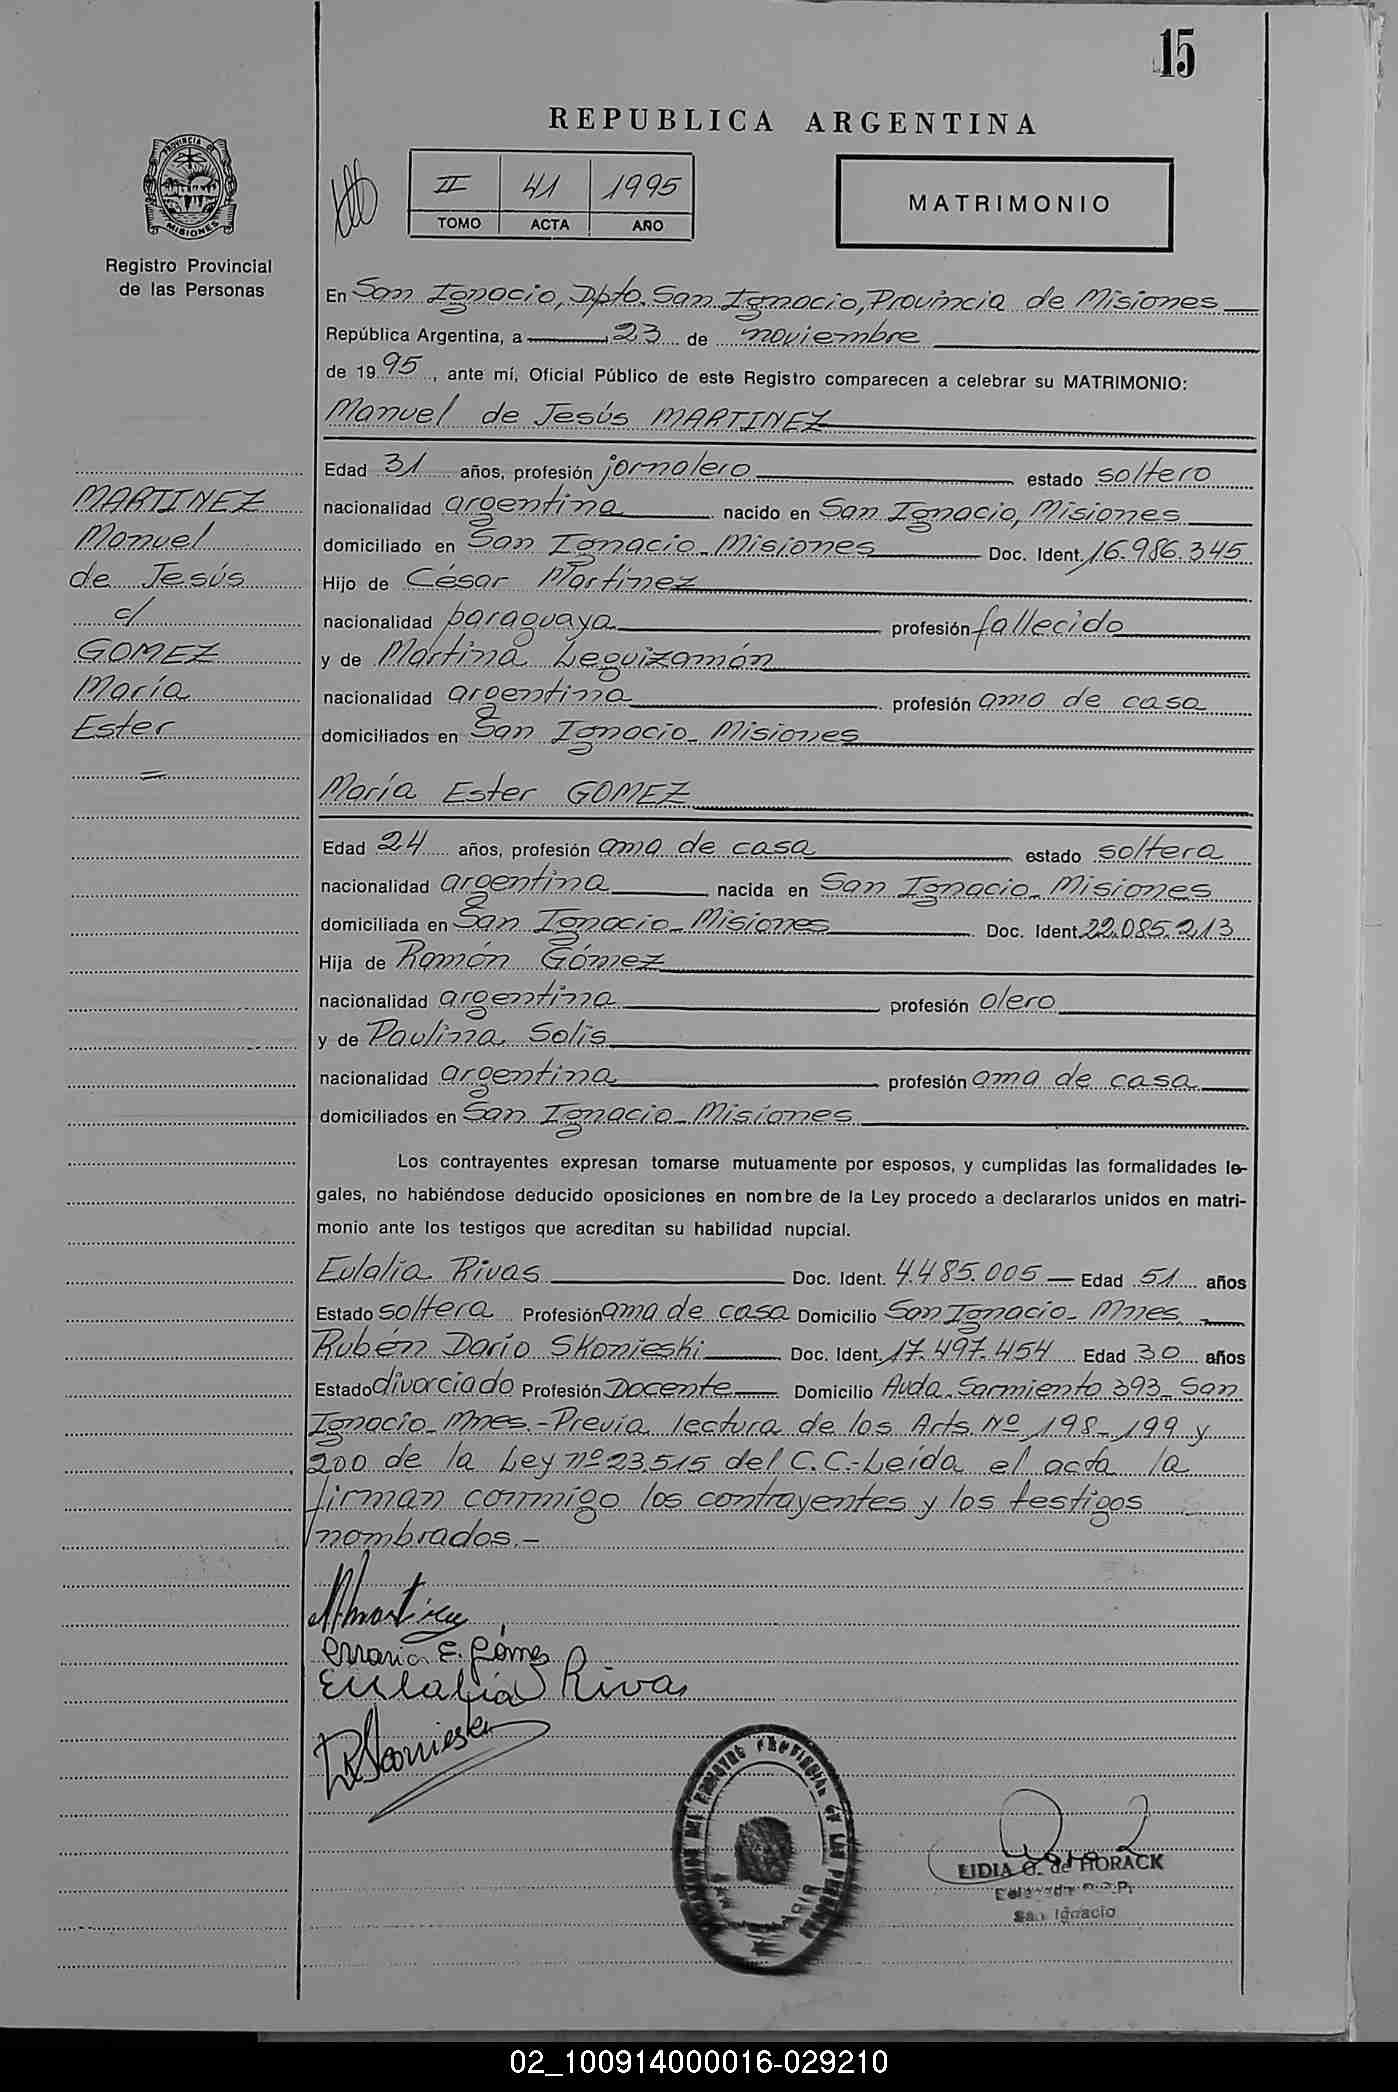 15
REPUBLICA ARGENTINA
II 41 1995
TOMO ACTA AÑO
MATRIMONIO
PROVINCIA DE MISIONES
Registro Provincial
de las Personas
En San Ignacio, Dpto. San Ignacio, Provincia de Misiones
República Argentina, a 23 de noviembre
de 1995, ante mí, Oficial Público de este Registro comparecen a celebrar su MATRIMONIO:
Manuel de Jesús MARTINEZ
Edad 31 años, profesión jornalero estado soltero
nacionalidad argentina nacido en San Ignacio, Misiones
domiciliado en San Ignacio - Misiones Doc. Ident. 16.986.345
Hijo de César Martínez
nacionalidad paraguaya profesión fallecido
y de Martina Leguizamón
nacionalidad argentina profesión ama de casa
domiciliados en San Ignacio - Misiones
MARTINEZ
Manuel
de Jesús
c/
GOMEZ
María
Ester
=
María Ester GOMEZ
Edad 24 años, profesión ama de casa estado soltera
nacionalidad argentina nacida en San Ignacio - Misiones
domiciliada en San Ignacio - Misiones Doc. Ident. 22.085.213
Hija de Ramón Gómez
nacionalidad argentina profesión olero
y de Paulina Solis
nacionalidad argentina profesión ama de casa
domiciliados en San Ignacio - Misiones
Los contrayentes expresan tomarse mutuamente por esposos, y cumplidas las formalidades le-
gales, no habiéndose deducido oposiciones en nombre de la Ley procedo a declararlos unidos en matri-
monio ante los testigos que acreditan su habilidad nupcial.
Eulalia Rivas Doc. Ident. 4.485.005 Edad 51 años
Estado soltera Profesión ama de casa Domicilio San Ignacio - Mnes.
Rubén Darío Skonieski Doc. Ident. 17.497.454 Edad 30 años
Estado divorciado Profesión Docente Domicilio Avda. Sarmiento 393 - San
Ignacio - Mnes. - Previa lectura de los Arts. Nº 198 - 199 y
200 de la Ley nº 23.515 del C.C. - Leída el acta la
firman conmigo los contrayentes y los testigos
nombrados. -
M. Martinez
Maria E. Gómez
Eulalia Rivas
Skonieski
LIDIA O. de HORACK
San Ignacio
02_100914000016-029210